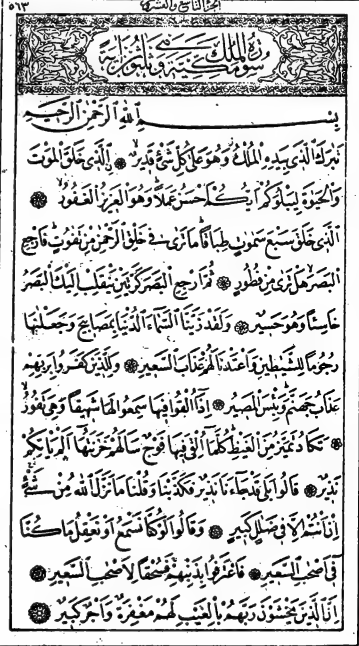 ٥٦٣ الجزء التاسع والعشرون
سورة الملك مكية وهي ثلثون آية
بِسْمِ اللهِ الرَّحْمٰنِ الرَّحِيمِ
تَبَارَكَ الَّذِي بِيَدِهِ الْمُلْكُ وَهُوَ عَلَى كُلِّ شَيْءٍ قَدِيرٌ ۝ اَلَّذِي خَلَقَ الْمَوْتَ
وَالْحَيٰوةَ لِيَبْلُوَكُمْ اَيُّكُمْ اَحْسَنُ عَمَلًا وَهُوَ الْعَزِيزُ الْغَفُورُ ۝
الَّذِي خَلَقَ سَبْعَ سَمٰوَاتٍ طِبَاقًا مَا تَرٰى فِي خَلْقِ الرَّحْمٰنِ مِنْ تَفٰوُتٍ فَارْجِعِ
الْبَصَرَ هَلْ تَرٰى مِنْ فُطُورٍ ۝ ثُمَّ ارْجِعِ الْبَصَرَ كَرَّتَيْنِ يَنْقَلِبْ اِلَيْكَ الْبَصَرُ
خَاسِئًا وَهُوَ حَسِيرٌ ۝ وَلَقَدْ زَيَّنَّا السَّمَاءَ الدُّنْيَا بِمَصَابِيحَ وَجَعَلْنٰهَا
رُجُومًا لِلشَّيٰطِينِ وَاَعْتَدْنَا لَهُمْ عَذَابَ السَّعِيرِ ۝ وَلِلَّذِينَ كَفَرُوا بِرَبِّهِمْ
عَذَابُ جَهَنَّمَ وَبِئْسَ الْمَصِيرُ ۝ اِذَا اُلْقُوا فِيهَا سَمِعُوا لَهَا شَهِيقًا وَهِيَ تَفُورُ
۝ تَكَادُ تَمَيَّزُ مِنَ الْغَيْظِ كُلَّمَا اُلْقِيَ فِيهَا فَوْجٌ سَاَلَهُمْ خَزَنَتُهَا اَلَمْ يَاْتِكُمْ
نَذِيرٌ ۝ قَالُوا بَلٰى قَدْ جَاءَنَا نَذِيرٌ فَكَذَّبْنَا وَقُلْنَا مَا نَزَّلَ اللهُ مِنْ شَيْءٍ
اِنْ اَنْتُمْ اِلَّا فِي ضَلٰلٍ كَبِيرٍ ۝ وَقَالُوا لَوْ كُنَّا نَسْمَعُ اَوْ نَعْقِلُ مَا كُنَّا
فِي اَصْحٰبِ السَّعِيرِ ۝ فَاعْتَرَفُوا بِذَنْبِهِمْ فَسُحْقًا لِاَصْحٰبِ السَّعِيرِ ۝
اِنَّ الَّذِينَ يَخْشَوْنَ رَبَّهُمْ بِالْغَيْبِ لَهُمْ مَغْفِرَةٌ وَاَجْرٌ كَبِيرٌ ۝